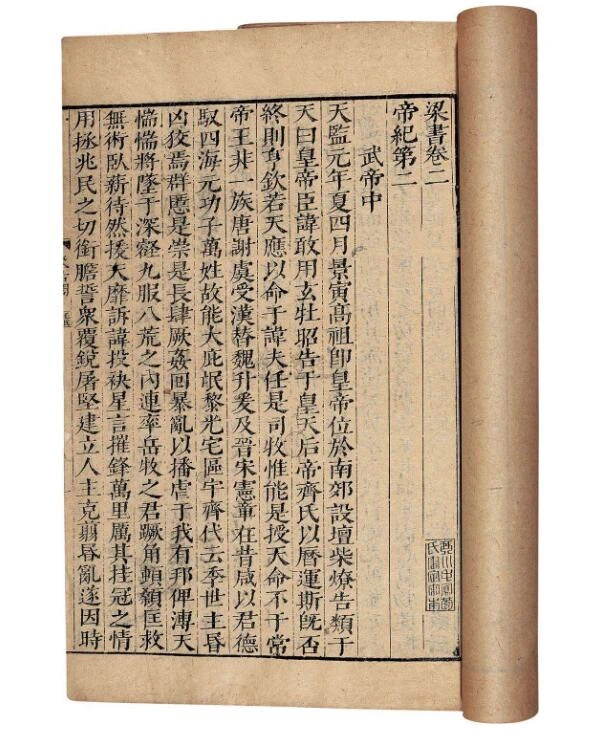 梁書卷二
帝紀第二
武帝中
天監元年夏四月景寅髙祖卽皇帝位於南郊設壇柴燎告類于
天曰皇帝臣諱敢用玄牡昭告于皇天后帝齊氏以曆運斯旣否
終則亨欽若天應以命于諱夫任是司牧惟能是授天命不于常
帝王非一族唐謝虞受漢替魏升爰及晉宋憲章在昔咸以君德
馭四海元功子萬姓故能大庇氓黎光宅區宇齊代云季世主昏
凶狡焉群慝是崇是長肆厥姦回暴亂以播虐于我有邦俾溥天
惴惴將墜于深壑九服八荒之內連率岳牧之君蹶角頓顙匡救
無術臥薪待然援天靡訴諱投袂星言摧鋒萬里厲其挂冠之情
用拯兆民之切銜膽誓衆覆銳屠堅建立人主克翦昏亂遂因時